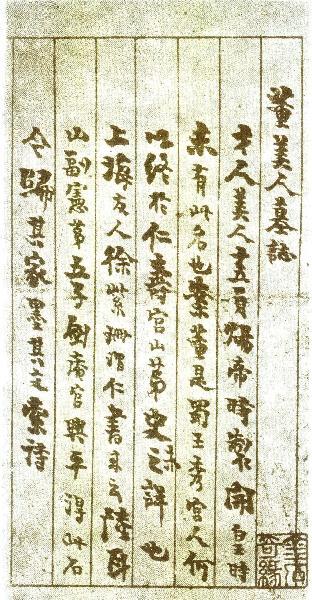 董美人墓誌
才人美人十五員煬帝時製開皇時
未有此名也葉董是蜀王秀宮人何
以終於仁壽宮山第史之未詳也
上海友人徐紫珊渭仁書來云陸耳
山副憲第五子劍庵官興平得此石
今歸其家墨其文索詩
金石奇緣